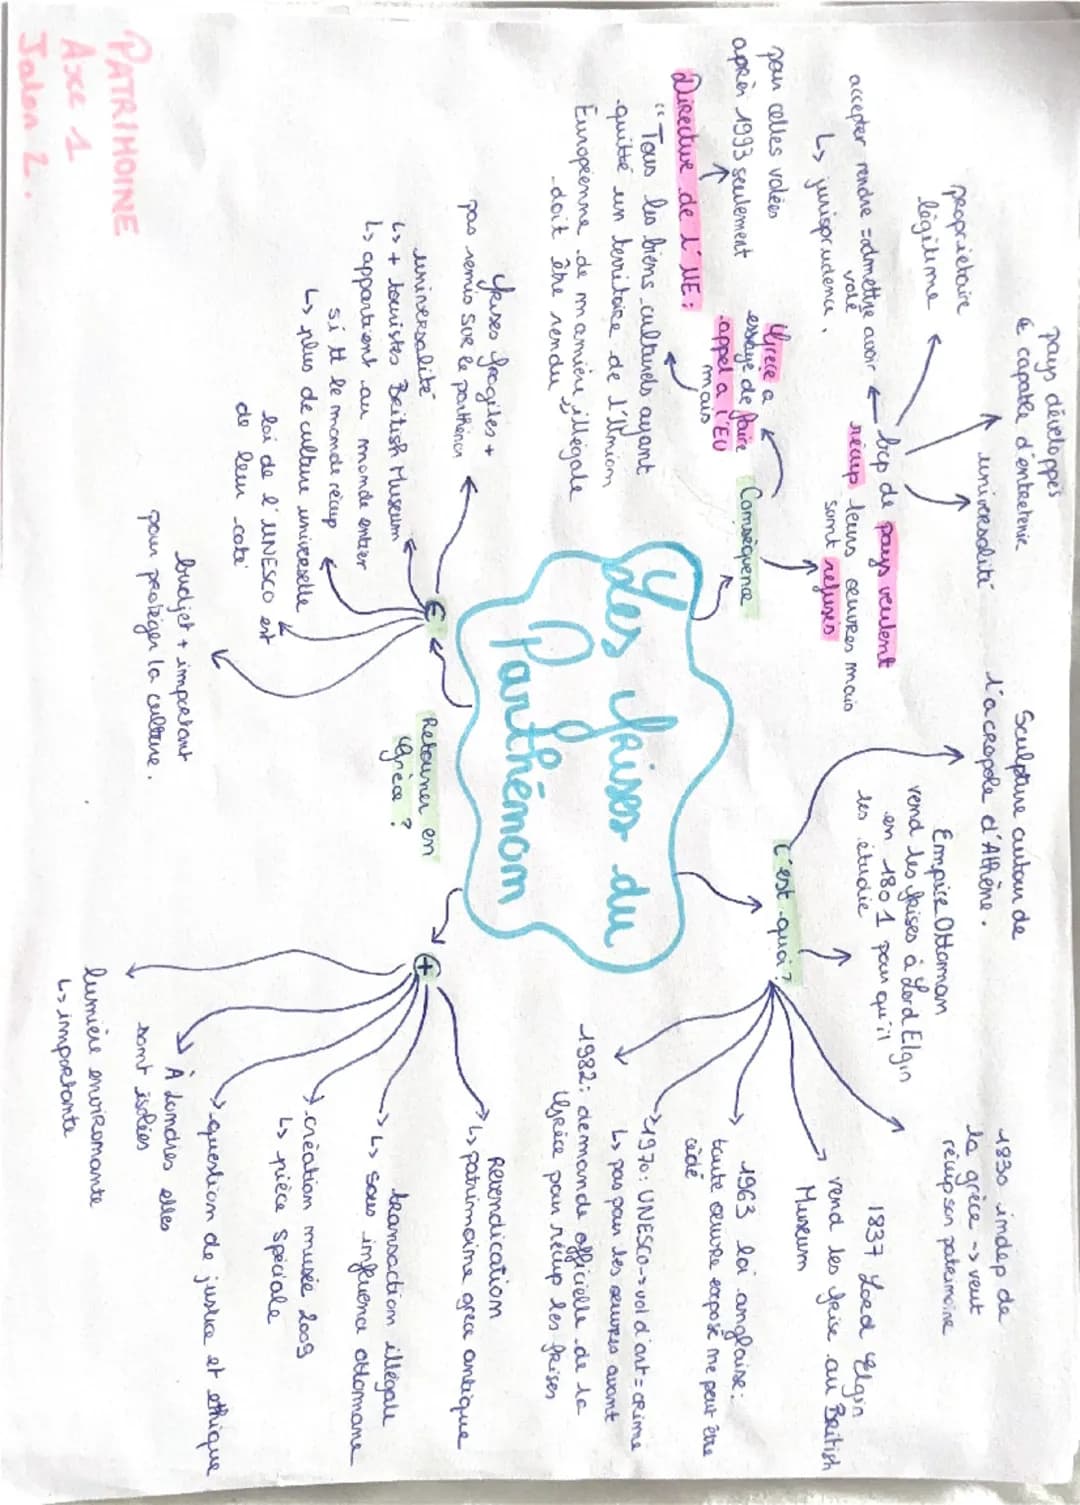 PATRIMOINE
Axe 1
Jalon 2.
Les frises du
Parthénon
C'est quoi?
Sculpture autour de
l'acropole d'Athène.
Empire Ottoman
vend les frises à Lord Elgin
en 1801 pour qu'il
les étudie
1830 indep de
la grèce -> veut
récup son patrimoine
1837 Lord Elgin
vend les frise au British
Museum
1963 loi anglaise:
toute œuvre exposé ne peut être
cédé
1970: UNESCO -> vol d'art = crime
↳ pas pour les œuvres avant
1982: demande officielle de la
Grèce pour récup les frises
Conséquence
bcp de pays veulent
récup leurs œuvres mais
sont refusés
universalité
pays développés
€ capable d'entretenir
propriétaire
légitime
accepter rendre = admettre avoir
volé
↳ jurisprudence.
Grèce a
essayé de faire
appel a l'EU
mais
Directive de l'UE:
pour celles volées
après 1993 seulement
"Tous les biens culturels ayant
quitté un territoire de l'Union
Européenne de manière illégale
doit être rendu"
Retourner en
Grèce?
+
Revendication
↳ patrimoine grec antique
transaction illégale
↳ sous influence ottomane
création musée 2009
↳ pièce spéciale
question de justice et ethique
À Londres elles
sont isolées
lumière environante
↳ importante
frises fragiles +
pas remis sur le parthénon
universalité
↳ + touristes British Museum
↳ appartient au monde entier
si tt le monde récup
↳ plus de culture universelle
loi de l'UNESCO est
de leur coté
budjet + important
pour protéger la culture.